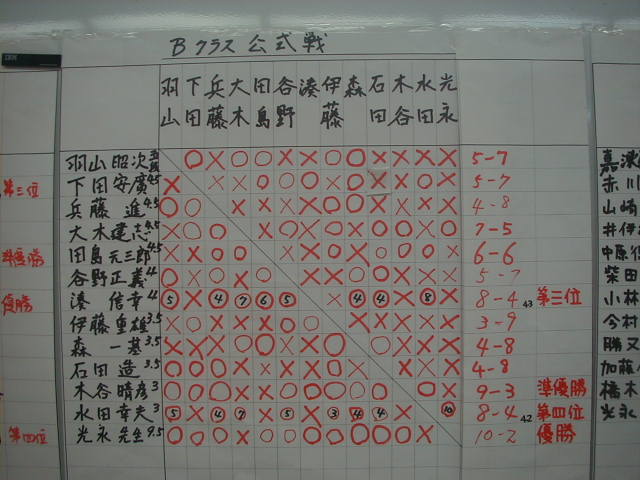 Bクラス 公式戦
羽山 下田 兵藤 大木 田島 谷野 湊 伊藤 森 石田 木谷 水田 光永
羽山 昭次 5-7
第三位 下田 安廣 4.5 5-7
兵藤 進 4.5 4-8
大木 建志 4.5 7-5
準優勝 田島 元三郎 4.5 6-6
谷野 正義 4 5-7
優勝 湊 信幸 4 ⑤ × ④ ⑦ ⑥ ⑤ × ④ ④ × ⑧ × 8-4 43 第三位
伊藤 重雄 3.5 3-9
森 一基 3.5 4-8
石田 造 3.5 4-8
木谷 晴彦 3 9-3 準優勝
水田 幸夫 3 ⑤ × ④ ⑦ × ⑤ × ③ ④ ④ × ⑩ 8-4 42 第四位
第四位 光永 先生 9.5 10-2 優勝
嘉
赤川
山崎
井伊
中原
柴田
小林
今村
勝又
加藤
橋本
光永